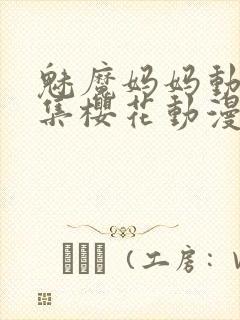 魅魔妈妈動
集櫻花動漫
(工房：V